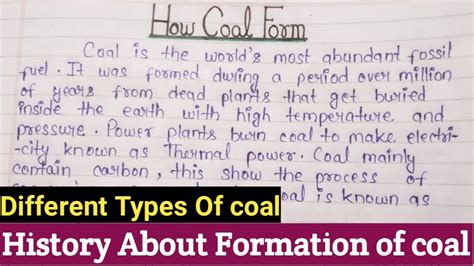 How Coal Form
Coal is the world's most abundant fossil
fuel. It was formed during a period over million
of years from dead plants that get buried
inside the earth with high temperature and
pressure. Power plants burn coal to make electri-
-city known as Thermal power. Coal mainly
contain carbon, this show the process of
coal is known as
Different Types Of coal
History About Formation of coal